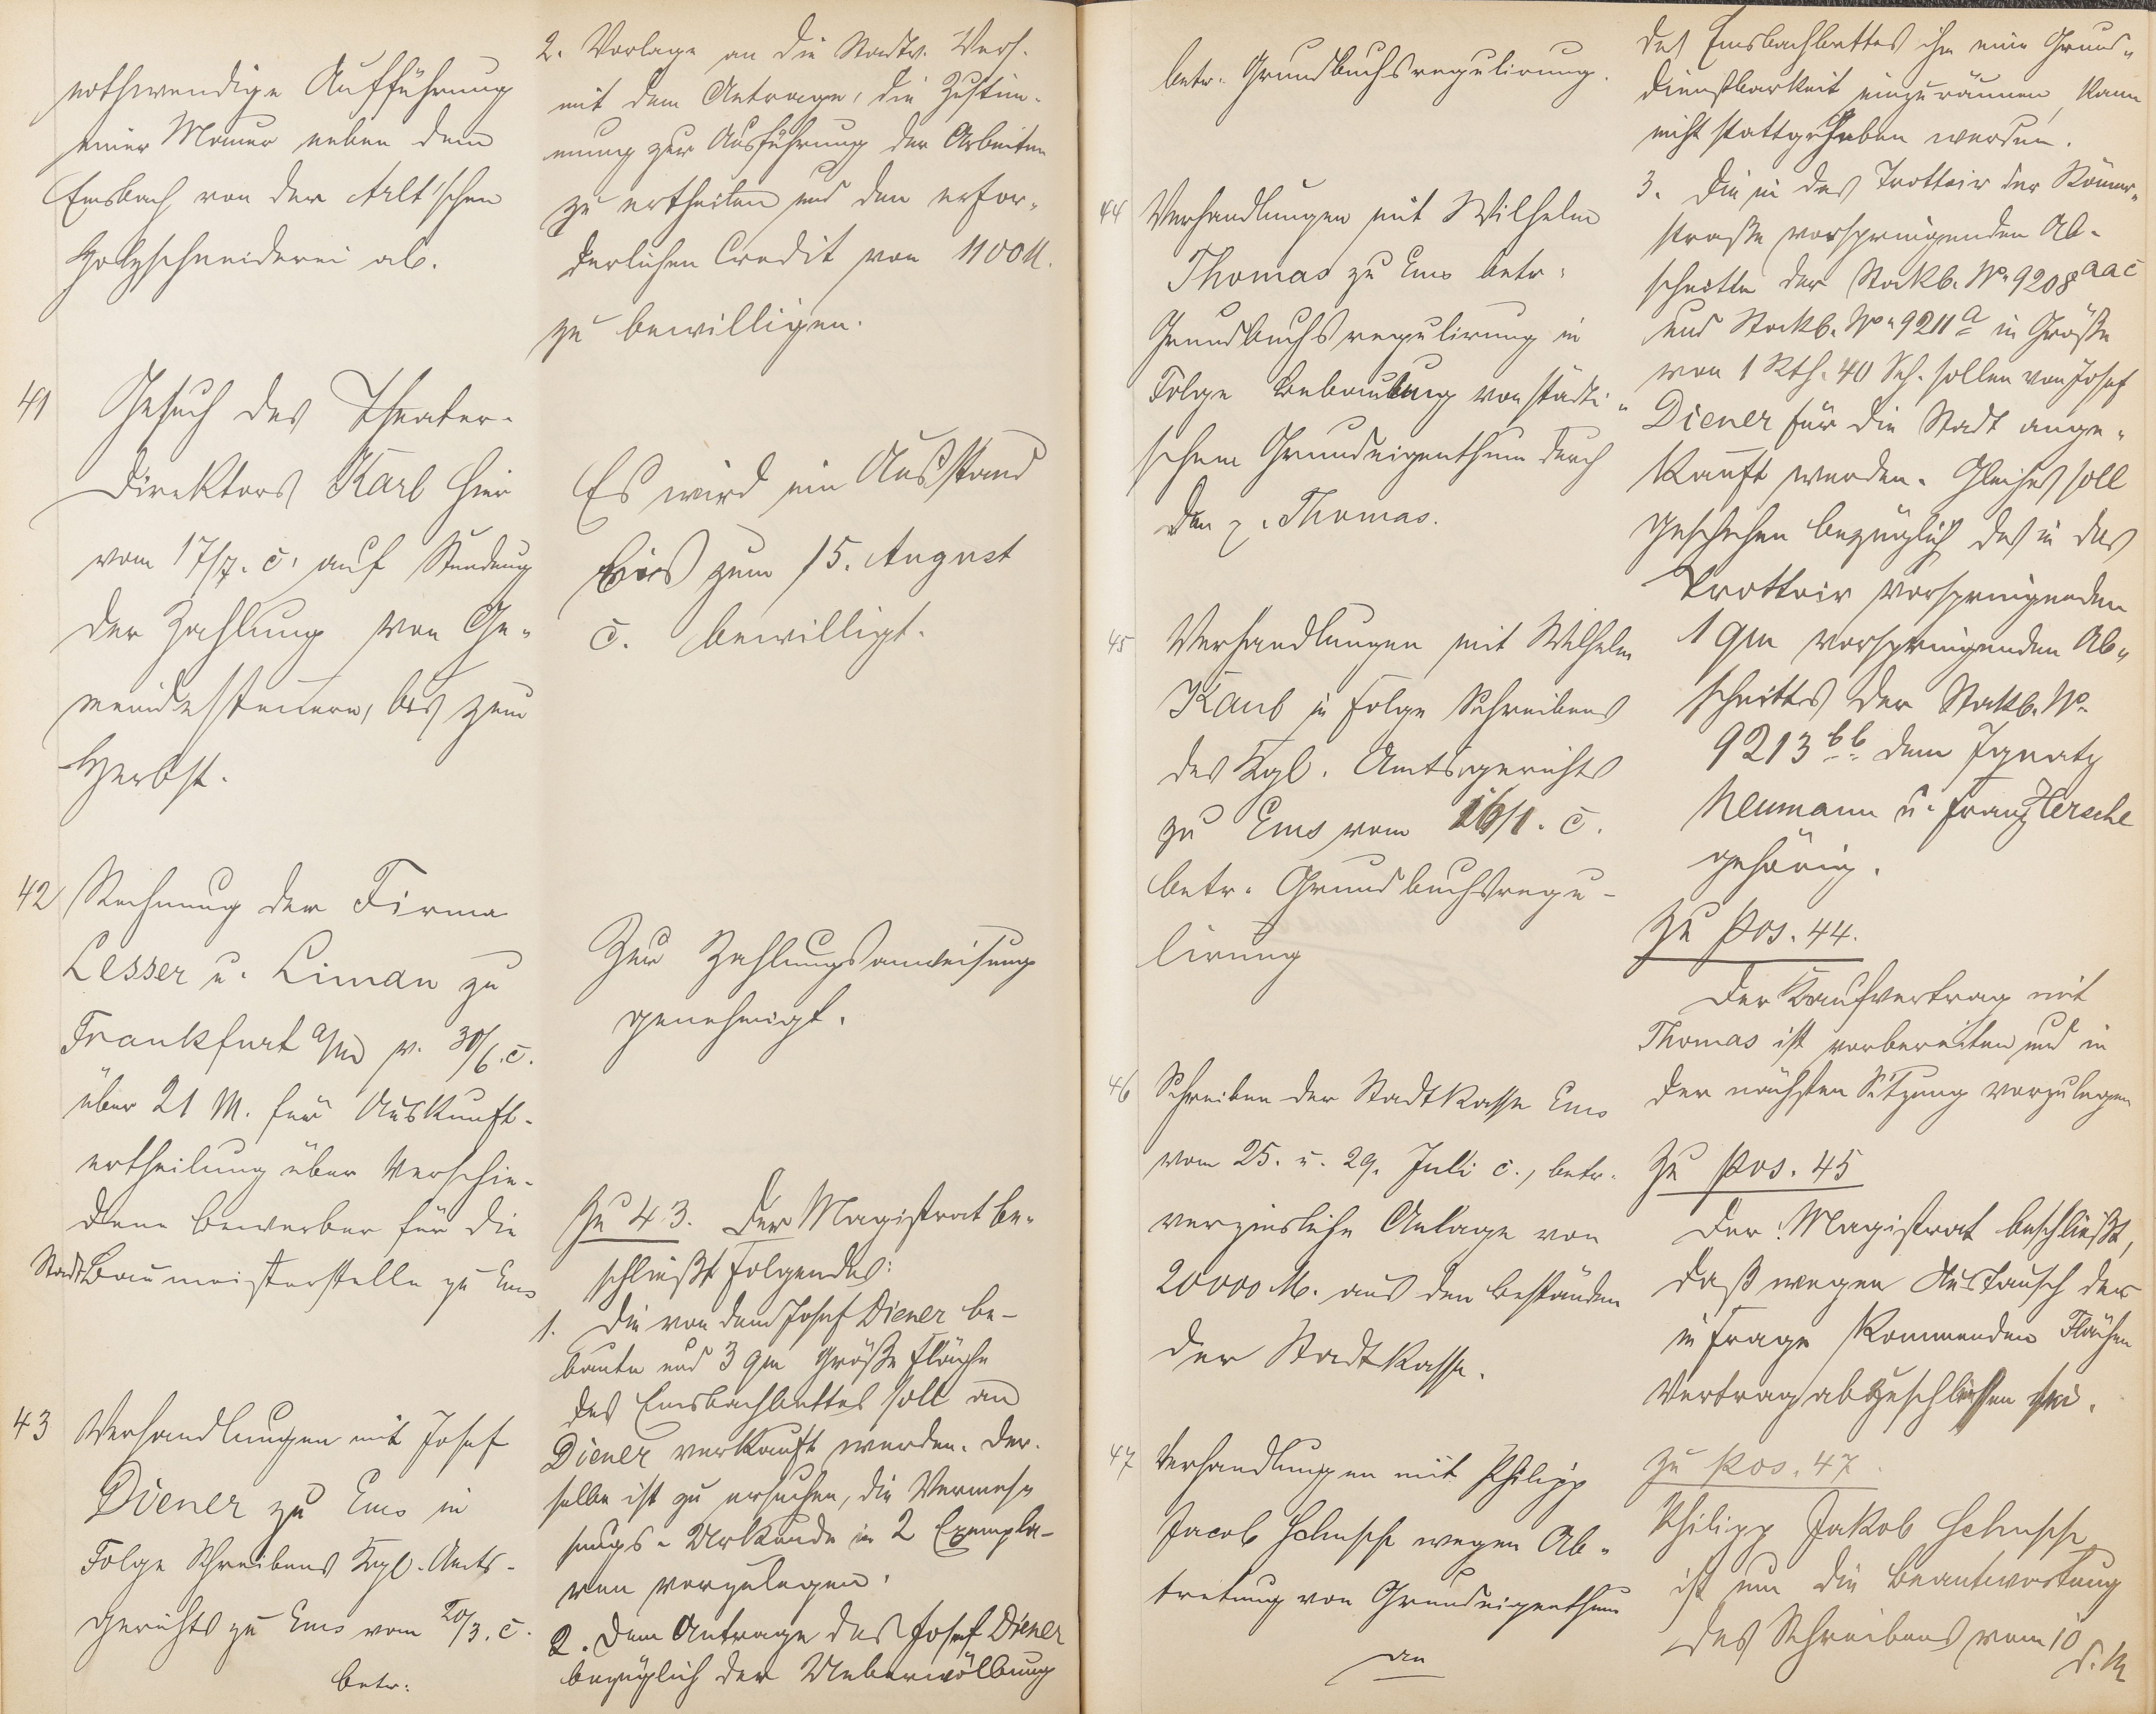 nothwendige Aufführung
einer Mauer neben dem
Emsbach von der Arlt'schen
Holzschneiderei ab.
41 Gesuch des Theater-
direktors Karl hier
vom 17/7. c. auf Stundung
der Zahlung von Ge-
meindesteuern, bis zum
Herbst.
42 Rechnung der Firma
Lesser u. Liman zu
Frankfurt a/M v. 30/6. c.
über 21 M. für Auskunft-
ertheilung über verschie-
dene Bewerber für die
Stadtbaumeisterstelle zu Ems
43 Verhandlungen mit Josef
Diener zu Ems in
Folge Schreibens Kgl. Amts-
gerichts zu Ems vom 20/3. c.
betr:
2. Vorlage an die Stadtv. Vers.
mit dem Antrage, die Zustim-
mung zur Ausführung der Arbeiten
zu ertheilen und den erfor-
derlichen Credit von 1100 M.
zu bewilligen.
Es wird ein Ausstand
bis zum 15. August
c. bewilligt.
Zur Zahlungsanweisung
genehmigt.
Zu 43. Der Magistrat be-
schließt Folgendes:
1. Die von dem Josef Diener be-
baute und 3 qm große Fläche
des Emsbachbettes soll an
Diener verkauft werden. Der-
selbe ist zu ersuchen, die Vermes-
sungs-Urkunde in 2 Exempla-
ren vorzulegen.
2. Dem Antrage des Josef Diener
bezüglich der Ueberwölbung
betr. Grundbuchsregulirung.
44 Verhandlungen mit Wilhelm
Thomas zu Ems betr.
Grundbuchsregulirung in
Folge Bebauung von städti-
schem Grundeigenthum durch
den p. Thomas.
45 Verhandlungen mit Wilhelm
Kaub in Folge Schreibens
des Kgl. Amtsgerichts
zu Ems vom 16/1. c.
betr. Grundbuchsregu-
lirung
46 Schreiben der Stadtkasse Ems
vom 25. u. 29. Juli c., betr.
verzinsliche Anlage von
20000 M. aus den Beständen
der Stadtkasse.
47 Verhandlungen mit Philipp
Jacob wegen Ab-
tretung von Grundeigenthum
an
des Emsbachbettes ihm eine Grund-
dienstbarkeit einzuräumen, kann
nicht stattgegeben werden.
3. Die in das Trottoir der Römer-
straße vorspringenden Ab-
schnitte der Stockb. No. 9208 aac
und Stockb. No. 9211 a in Größe
von 1 Rth. 40 Sch. sollen von Josef
Diener für die Stadt ange-
kauft werden. Gleiches soll
geschehen bezüglich des in das
Trottoir vorspringenden
1 qm vorspringenden Ab-
schnittes der Stockb. No.
9213 bb dem Ignatz
Neumann u. Franz Hersche
gehörig.
Zu Pos. 44.
Der Kaufvertrag mit
Thomas ist vorbereiten und in
der nächsten Sitzung vorzulegen
Zu Pos. 45
Der Magistrat beschließt,
daß wegen Austausch der
in Frage kommenden Flächen
Vertrag abzuschließen sei.
Zu Pos. 47.
Philipp Jakob
ist um die Beantwortung
des Schreibens vom 10
d. M